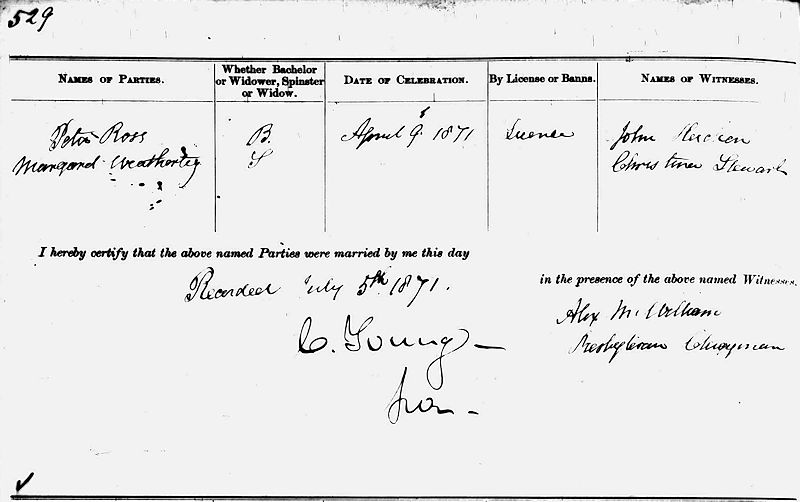 529
NAMES OF PARTIES.
Whether Bachelor or Widower, Spinster or Widow.
DATE OF CELEBRATION.
By License or Banns.
NAMES OF WITNESSES.
Peter Ross
B.
April 9th 1871
License
John
Margaret
S
Christina Stewart
I hereby certify that the above named Parties were married by me this day
in the presence of the above named Witnesses.
Recorded July 5th 1871.
Alex McWilliam
C. Young
Presbyterian Clergyman